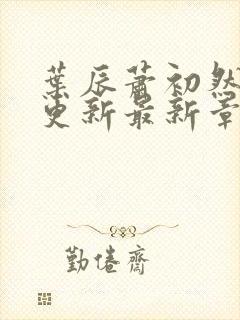 葉辰蕭初然
更新最新章
勤倦齋